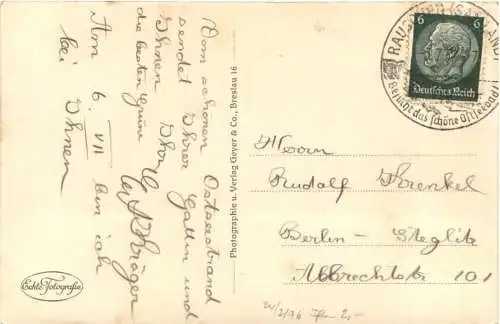 Vom schönen Ostseestrand
sendet Ihrer Gattin und
Ihnen
die besten Grüße
Am 6. VII bin ich
bei Ihnen
Echte Fotografie
Photographie u. Verlag Geyer & Co., Breslau 16
RAUSCHEN (SAMLAND)
Besucht das schöne Ostseebad
6 6
Deutsches Reich
Herrn
Rudolf Threnkel
Berlin-Steglitz
Albrechtstr 101